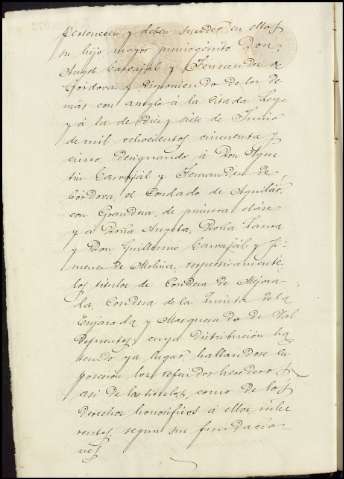 pertenecen y deben suceder en ellos
su hijo mayor primogénito Don
Angel Carvajal y Fernandez de
Córdova y disponiendo de los de
más con arreglo á la citada Ley
y á la de diez y siete de Junio
de mil ochocientos cincuenta y
cinco designando á Don Agus
tín Carvajal y Fernandez de
Córdova, el Condado de Aguilar,
con Grandeza de primera clase
y á Doña Angela, Doña
y Don Guillermo Carvajal y Ji
menez de Molina, respectivamente,
los títulos de Condesa de Mejora
da, Condesa de la Quinta de la
Enjarada y Marquesado de Val
defuentes cuya distribución ha
tenido ya lugar hallandose en
posesión los referidos herederos
así de los títulos, como de los
derechos honoríficos á ellos inhe
rentes segun sus fundacio
nes